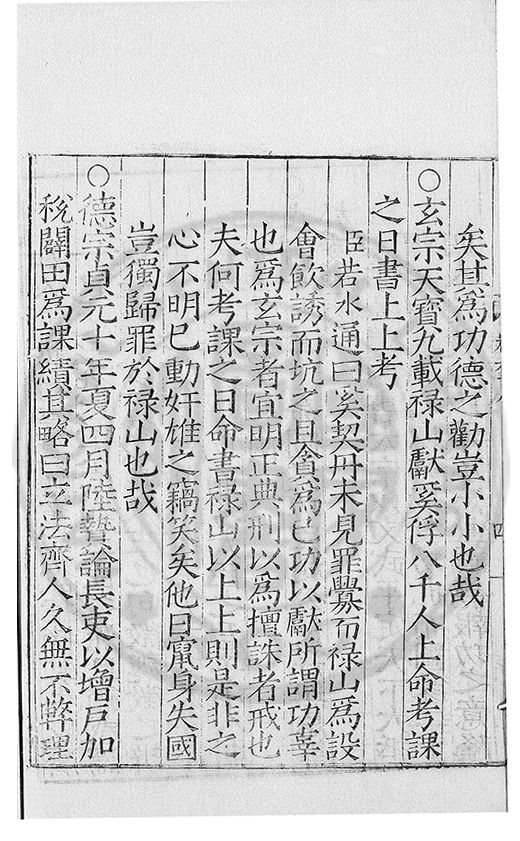 矣其爲功德之勸豈小小也哉
○玄宗天寶九載禄山獻奚俘八千人上命考課
之日書上上考
臣若水通曰奚契丹未見罪釁而禄山爲設
會飲誘而坑之且貪爲己功以獻所謂功辜
也爲玄宗者宜明正典刑以爲擅誅者戒也
夫何考課之日命書禄山以上上則是非之
心不明已動奸雄之竊笑矣他日竄身失國
豈獨歸罪於禄山也哉
○德宗貞元十年夏四月陸贄論長吏以增戸加
稅闢田爲課績其略曰立法齊人久無不弊理